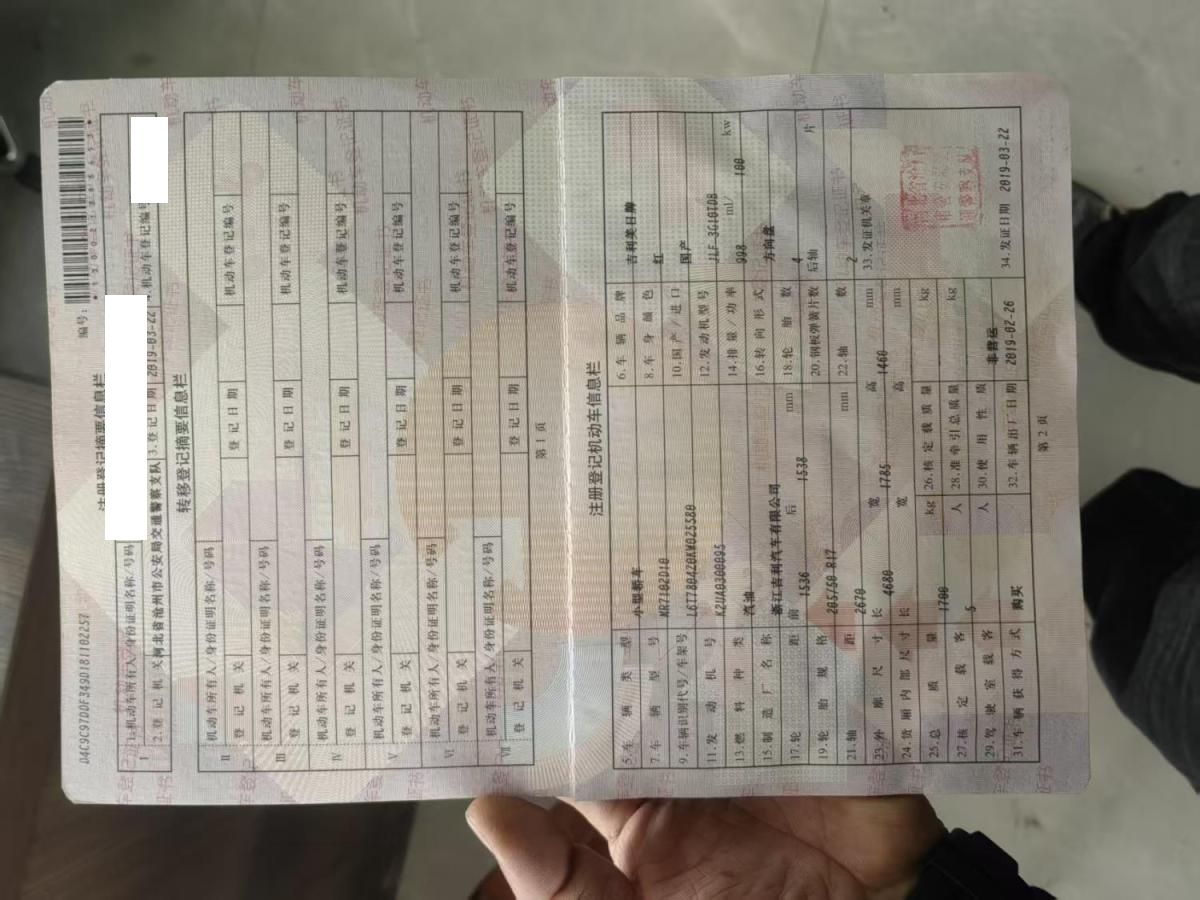 D4C9C97DDF349D181I102257
编号:
注册登记摘要信息栏
I 1.机动车所有人/身份证明名称/号码
2.登记机关 河北省沧州市公安局交通警察支队 3.登记日期 2019-03-22 4.机动车登记编号
转移登记摘要信息栏
II 机动车所有人/身份证明名称/号码
登记机关 登记日期 机动车登记编号
III 机动车所有人/身份证明名称/号码
登记机关 登记日期 机动车登记编号
IV 机动车所有人/身份证明名称/号码
登记机关 登记日期 机动车登记编号
V 机动车所有人/身份证明名称/号码
登记机关 登记日期 机动车登记编号
VI 机动车所有人/身份证明名称/号码
登记机关 登记日期 机动车登记编号
VII 机动车所有人/身份证明名称/号码
登记机关 登记日期 机动车登记编号
第 1 页
注册登记机动车信息栏
5.车辆类型 小型轿车 6.车辆品牌 吉利美日牌
7.车辆型号 MR7102D10 8.车身颜色 红
9.车辆识别代号/车架号 L6T7804Z0KW025580 10.国产/进口 国产
11.发动机号 K2UA0300095 12.发动机型号 JLF-3G10TDB
13.燃料种类 汽油 14.排量/功率 998 ml/ 100 kw
15.制造厂名称 浙江吉利汽车有限公司 16.转向形式 方向盘
17.轮距 前 1536 后 1538 mm 18.轮胎数 4
19.轮胎规格 205/50 R17 20.钢板弹簧片数 后轴 片
21.轴距 2670 mm 22.轴数 2
23.外廓尺寸 长 4680 宽 1785 高 1460 mm 33.发证机关章
24.货厢内部尺寸 长 宽 高 mm
25.总质量 1700 kg 26.核定载质量 kg
27.核定载客 5 人 28.准牵引总质量 kg
29.驾驶室载客 人 30.使用性质 非营运
31.车辆获得方式 购买 32.车辆出厂日期 2019-02-26 34.发证日期 2019-03-22
第 2 页